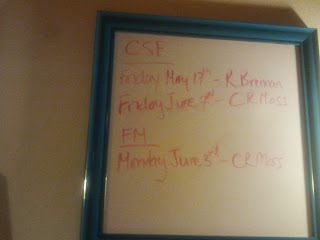 CSE
Friday May 17th - R Brennan
Friday June 7th - CR Moss
FM
Monday June 3rd - CR Moss